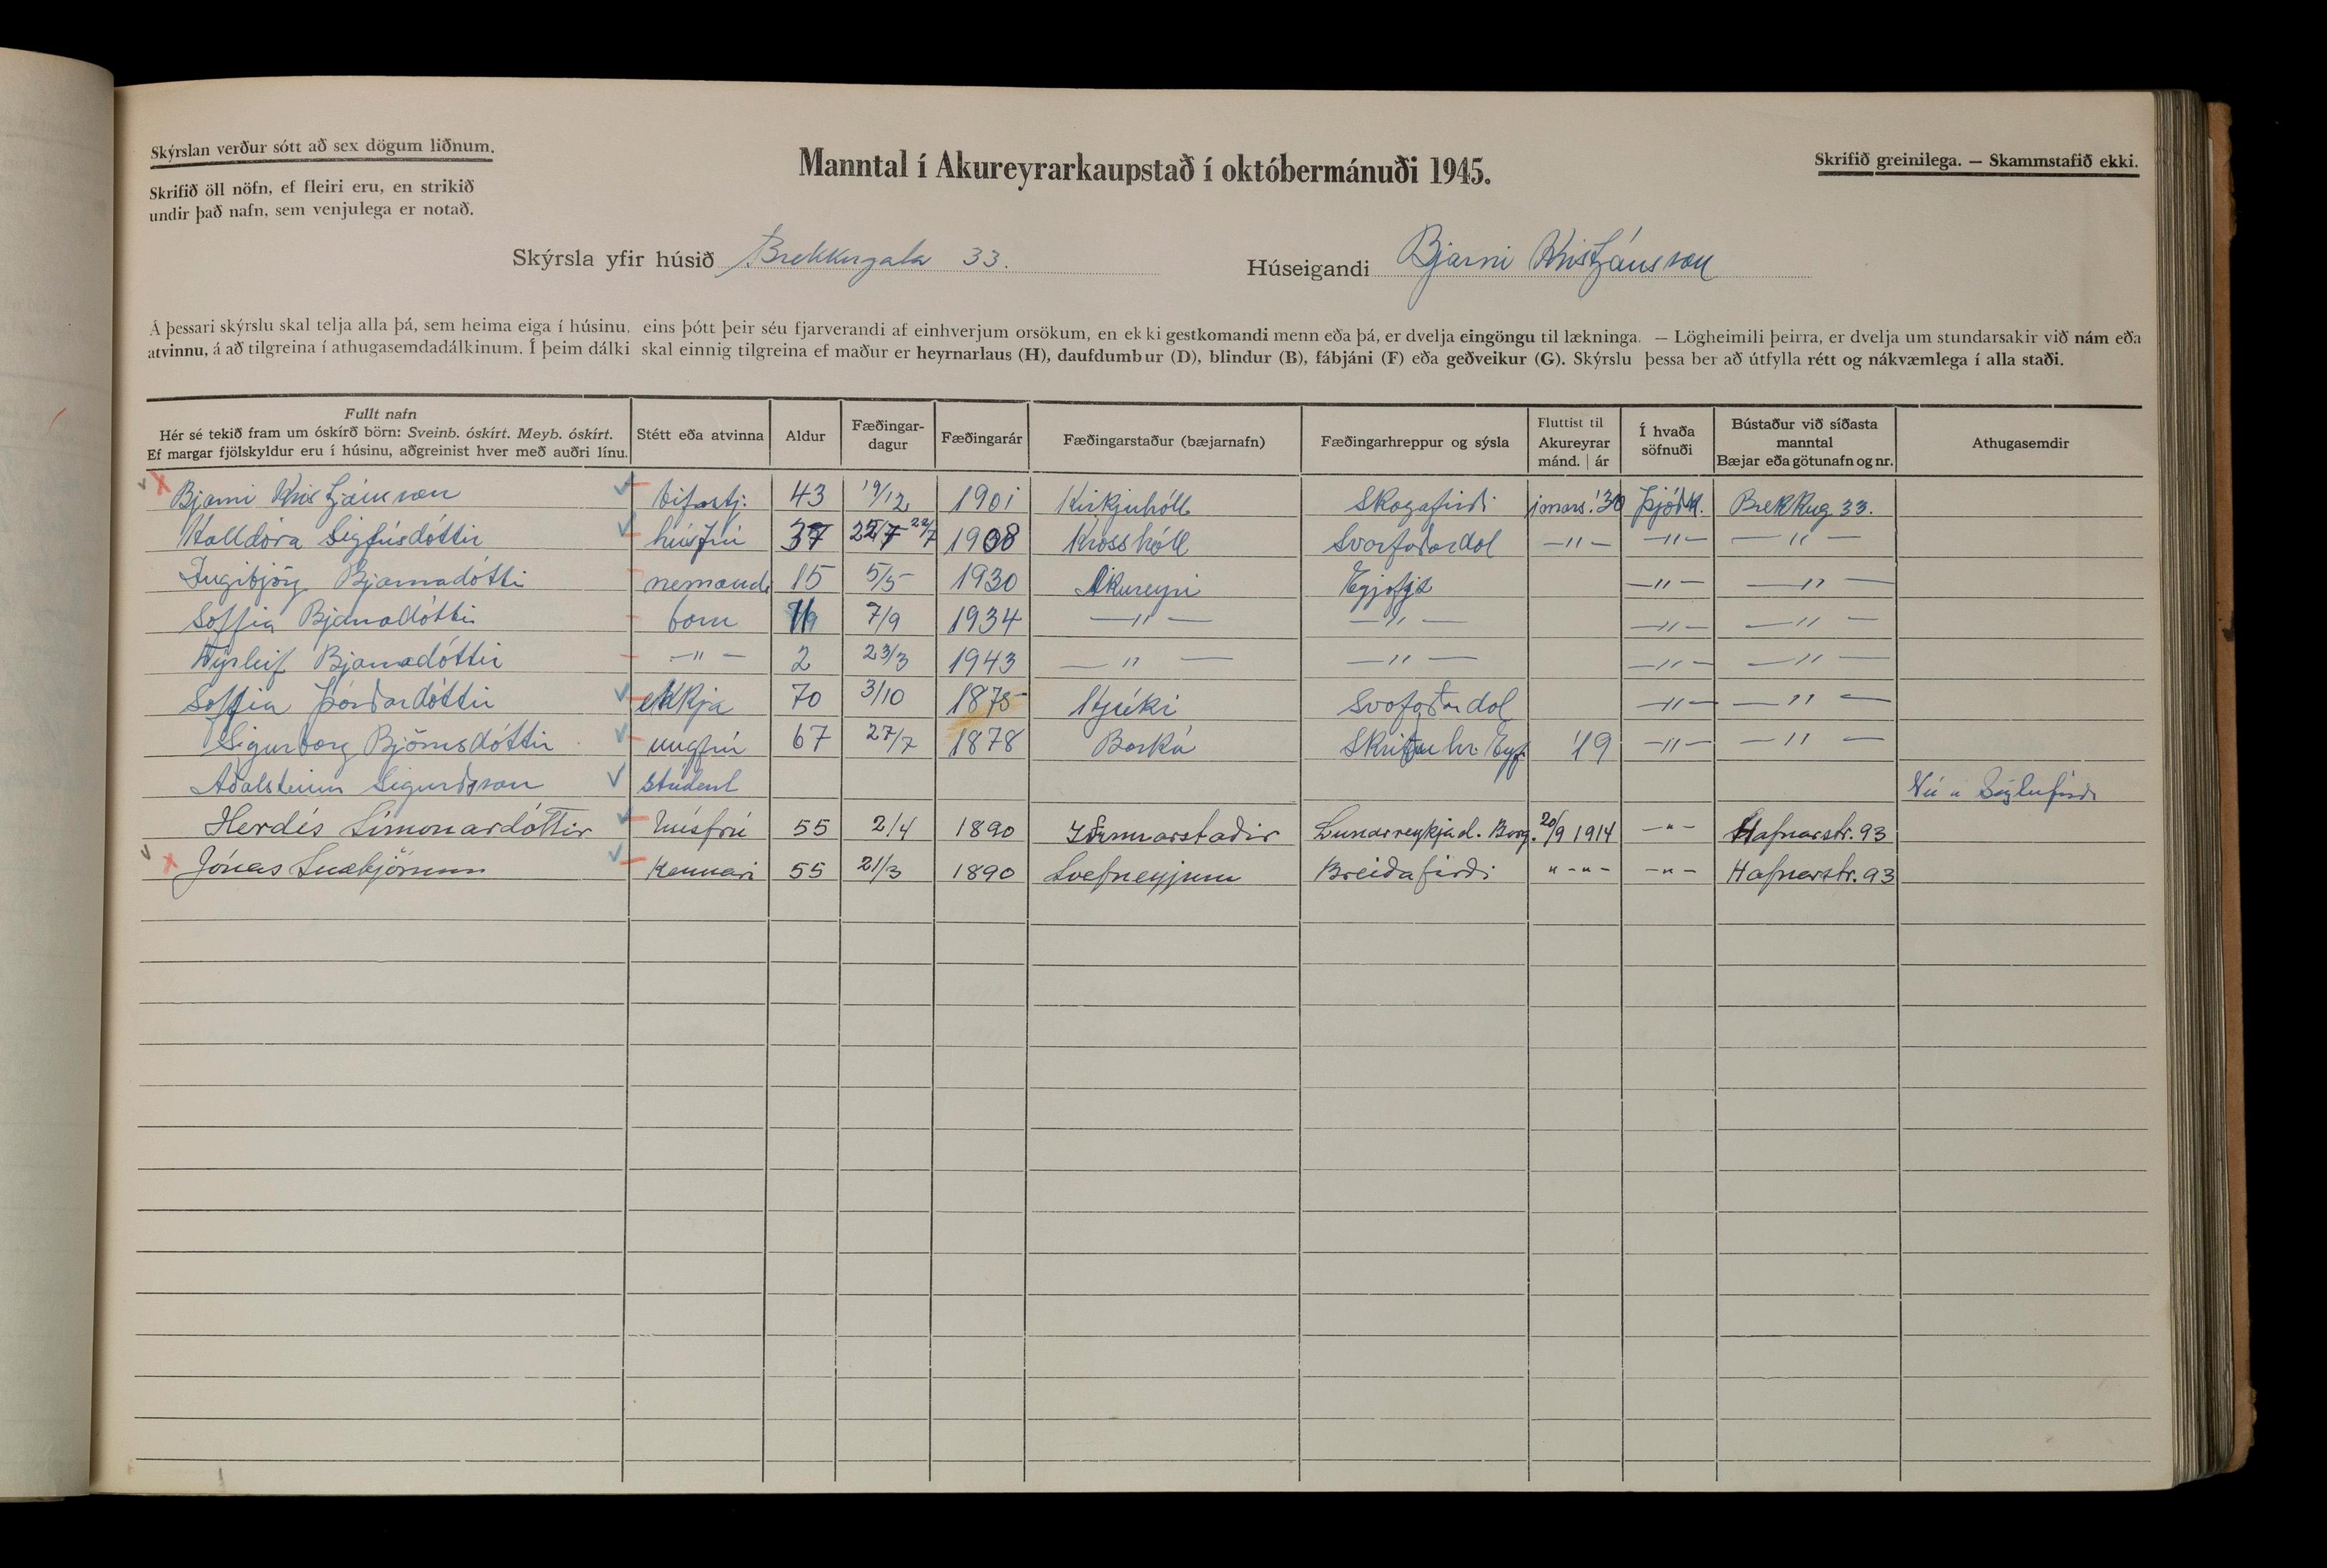 Skýrslan verður sótt að sex dögum liðnum.
Skrifið öll nöfn, ef fleiri eru, en strikið
undir það nafn, sem venjulega er notað.
Manntal í Akureyrarkaupstað í októbermánuði 1945.
Skrifið greinilega. — Skammstafið ekki.
Skýrsla yfir húsið Brekkugata 33.
Húseigandi Bjarni Kristjánsson
Á þessari skýrslu skal telja alla þá, sem heima eiga í húsinu, eins þótt þeir séu fjarverandi af einhverjum orsökum, en ekki gestkomandi menn eða þá, er dvelja eingöngu til lækninga. — Lögheimili þeirra, er dvelja um stundarsakir við nám eða
atvinnu, á að tilgreina í athugasemdadálkinum. Í þeim dálki skal einnig tilgreina ef maður er heyrnarlaus (H), daufdumbur (D), blindur (B), fábjáni (F) eða geðveikur (G). Skýrslu þessa ber að útfylla rétt og nákvæmlega í alla staði.
Fullt nafn
Hér sé tekið fram um óskírð börn: Sveinb. óskírt. Meyb. óskírt.
Ef margar fjölskyldur eru í húsinu, aðgreinist hver með auðri línu.
Stétt eða atvinna
Aldur
Fæðingar-
dagur
Fæðingarár
Fæðingarstaður (bæjarnafn)
Fæðingarhreppur og sýsla
Fluttist til
Akureyrar
mánd. | ár
Í hvaða
söfnuði
Bústaður við síðasta
manntal
Bæjar eða götunafn og nr.
Athugasemdir
Bjarni Kristjánsson bifrstj. 43 19/12 1901 Kirkjuhóll Skagafirði mars. '30 Þjóðk. Brekkug 33.
Halldóra Sigfúsdóttir húsfrú 37 22/7 1908 Krosshóll Svarfaðardal —"— —"— —"—
Ingibjörg Bjarnadóttir nemandi 15 5/5 1930 Akureyri Eyjafjs —"— —"—
Soffía Bjarnadóttir barn 7/9 1934 —"— —"— —"— —"—
Bjarnadóttir —"— 2 23/3 1943 —"— —"— —"— —"—
Soffía Þórðardóttir ekkja 70 3/10 1875 Svafaðardal —"— —"—
Sigurborg Björnsdóttir ungfrú 67 27/7 1878 Barká Skriðu hr. Eyf '19 —"— —"—
Aðalsteinn Sigurðsson stúdent Nú á Siglufirði
Herdís Símonardóttir húsfrú 55 2/4 1890 Lundarreykjad. Borg. 20/9 1914 —"— Hafnarstr. 93
Jónas Snæbjörnsson Kennari 55 21/3 1890 Svefneyjum Breiðafirði "—"— —"— Hafnarstr. 93